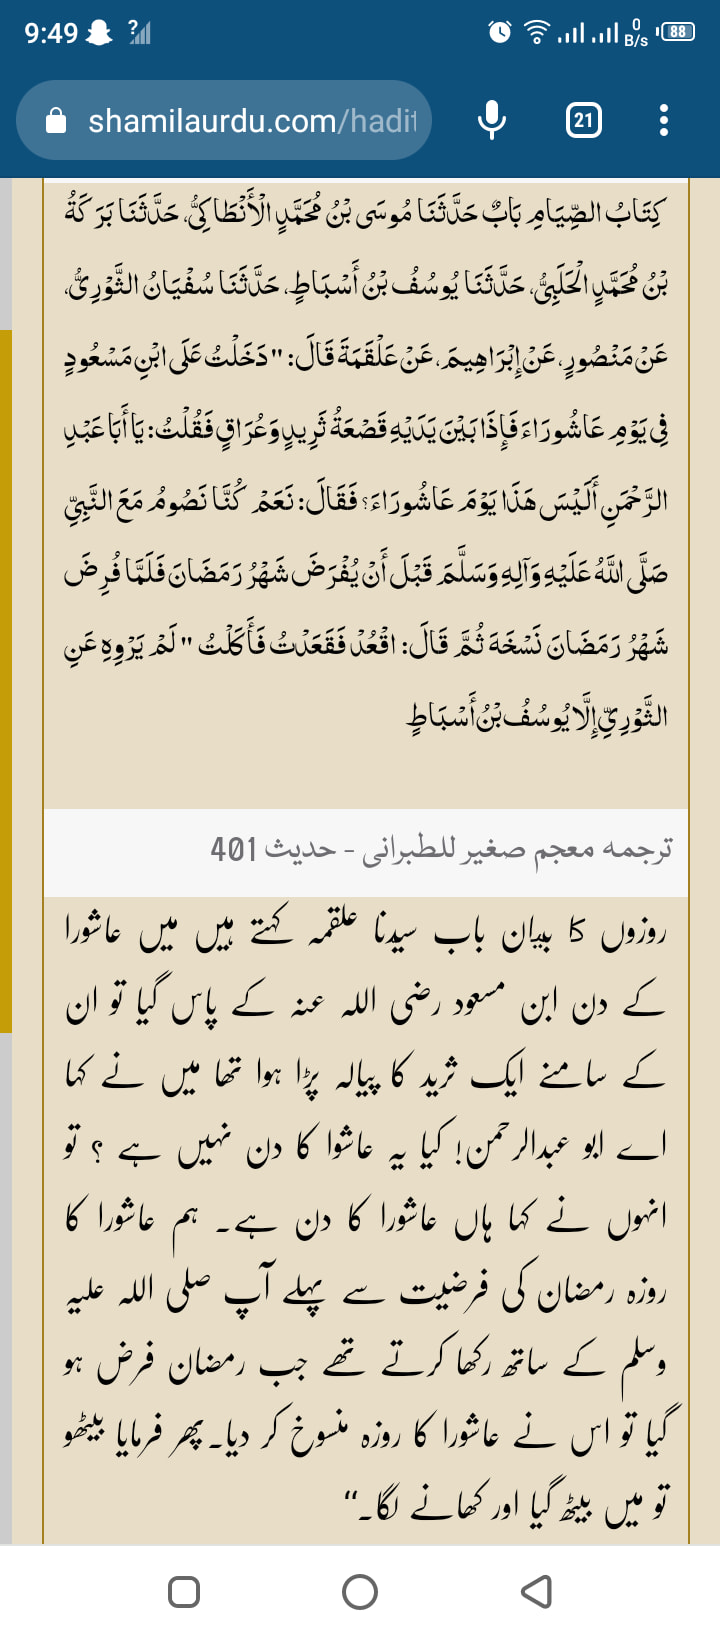 9:49
0 B/s 88
shamilaurdu.com/hadit
21
كِتَابُ الصِّيَامِ بَابٌ حَدَّثَنَا مُوسَى بْنُ مُحَمَّدٍ الْأَنْطَاكِيُّ، حَدَّثَنَا بَرَكَةُ
بْنُ مُحَمَّدٍ الْحَلَبِيُّ، حَدَّثَنَا يُوسُفُ بْنُ أَسْبَاطٍ، حَدَّثَنَا سُفْيَانُ الثَّوْرِيُّ،
عَنْ مَنْصُورٍ، عَنْ إِبْرَاهِيمَ، عَنْ عَلْقَمَةَ قَالَ: "دَخَلْتُ عَلَى ابْنِ مَسْعُودٍ
فِي يَوْمِ عَاشُورَاءَ فَإِذَا بَيْنَ يَدَيْهِ قَصْعَةُ ثَرِيدٍ وَعُرَاقٍ فَقُلْتُ: يَا أَبَا عَبْدِ
الرَّحْمَنِ أَلَيْسَ هَذَا يَوْمَ عَاشُورَاءَ؟ فَقَالَ: نَعَمْ كُنَّا نَصُومُ مَعَ النَّبِيِّ
صَلَّى اللَّهُ عَلَيْهِ وَآلِهِ وَسَلَّمَ قَبْلَ أَنْ يُفْرَضَ شَهْرُ رَمَضَانَ فَلَمَّا فُرِضَ
شَهْرُ رَمَضَانَ نَسْخَهَ ثُمَّ قَالَ: اقْعُدْ فَقَعَدْتُ فَأَكَلْتُ " لَمْ يَرْوِهِ عَنِ
الثَّوْرِيِّ إِلَّا يُوسُفُ بْنُ أَسْبَاطٍ
ترجمہ معجم صغیر للطبرانی - حدیث 401
روزوں کا بیان باب سیدنا علقمہ کہتے ہیں میں عاشورا
کے دن ابن مسعود رضی اللہ عنہ کے پاس گیا تو ان
کے سامنے ایک ثرید کا پیالہ پڑا ہوا تھا میں نے کہا
اے ابو عبدالرحمن! کیا یہ عاشوا کا دن نہیں ہے ؟ تو
انہوں نے کہا ہاں عاشورا کا دن ہے۔ ہم عاشورا کا
روزہ رمضان کی فرضیت سے پہلے آپ صلی اللہ علیہ
وسلم کے ساتھ رکھا کرتے تھے جب رمضان فرض ہو
گیا تو اس نے عاشورا کا روزہ منسوخ کر دیا۔ پھر فرمایا بیٹھو
تو میں بیٹھ گیا اور کھانے لگا۔‘‘